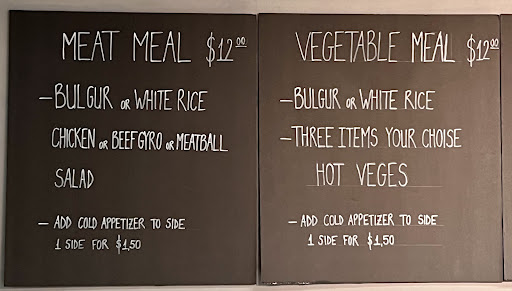 MEAT MEAL $12.00
– BULGUR OR WHITE RICE
CHICKEN OR BEEF GYRO OR MEATBALL
SALAD
– ADD COLD APPETIZER TO SIDE
1 SIDE FOR $1,50
VEGETABLE MEAL $12.00
– BULGUR OR WHITE RICE
– THREE ITEMS YOUR CHOISE
HOT VEGES
– ADD COLD APPETIZER TO SIDE
1 SIDE FOR $1,50